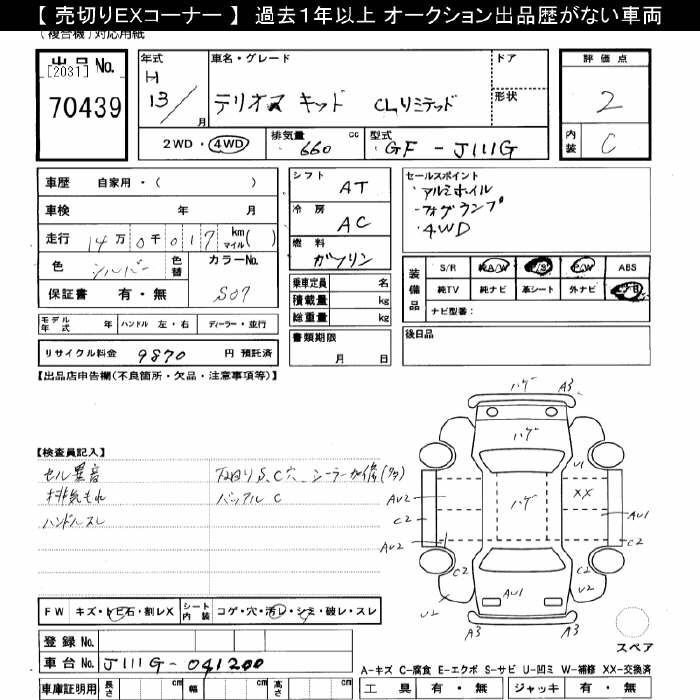 【 売切りEXコーナー 】 過去1年以上 オークション出品歴がない車両
(複合機)対応用紙
出品 No.
[2031]
70439
年式
H
13/
月
車名・グレード
テリオス キッド CLリミテッド
ドア
形状
評価点
2
内装
C
2WD・4WD
排気量 cc
660
型式
GF-J111G
車歴 自家用・( )
車検 年 月
走行 14万 0千 0 1 7 km マイル( )
色 シルバー
色替
カラーNo.
S07
保証書 有・無
シフト AT
冷房 AC
燃料 ガソリン
乗車定員 名
積載量 kg
総重量 kg
セールスポイント
・アルミホイル
・フォグランプ
・4WD
装備品
S/R 純A/W P/S P/W ABS
純TV 純ナビ 革シート 外ナビ
ナビ型番:
モデル年式 年 ハンドル 左・右 ディーラー・並行
書類期限
月 日
後日品
リサイクル料金 9870 円 預託済
【出品店申告欄(不良箇所・欠品・注意事項等)】
【検査員記入】
セル異音
排気もれ
ハンドルスレ
下回りS、C穴
バックアルC
FW キズ・トビ石・割レX シート内装 コゲ・穴・汚レ・シミ・破レ・スレ
登録 No.
車台 No. J111G-041200
車庫証明用 長さ cm 幅 cm 高さ cm
ハゲ
A3
ハゲ
U1
AU2
ハゲ
XX
C2
AU1
AU2
C2
C2
AU1
C2
U2
A3
A3
スペア
A-キズ C-腐食 E-エクボ S-サビ U-凹ミ W-補修 XX-交換済
工具 有・無 ジャッキ 有・無